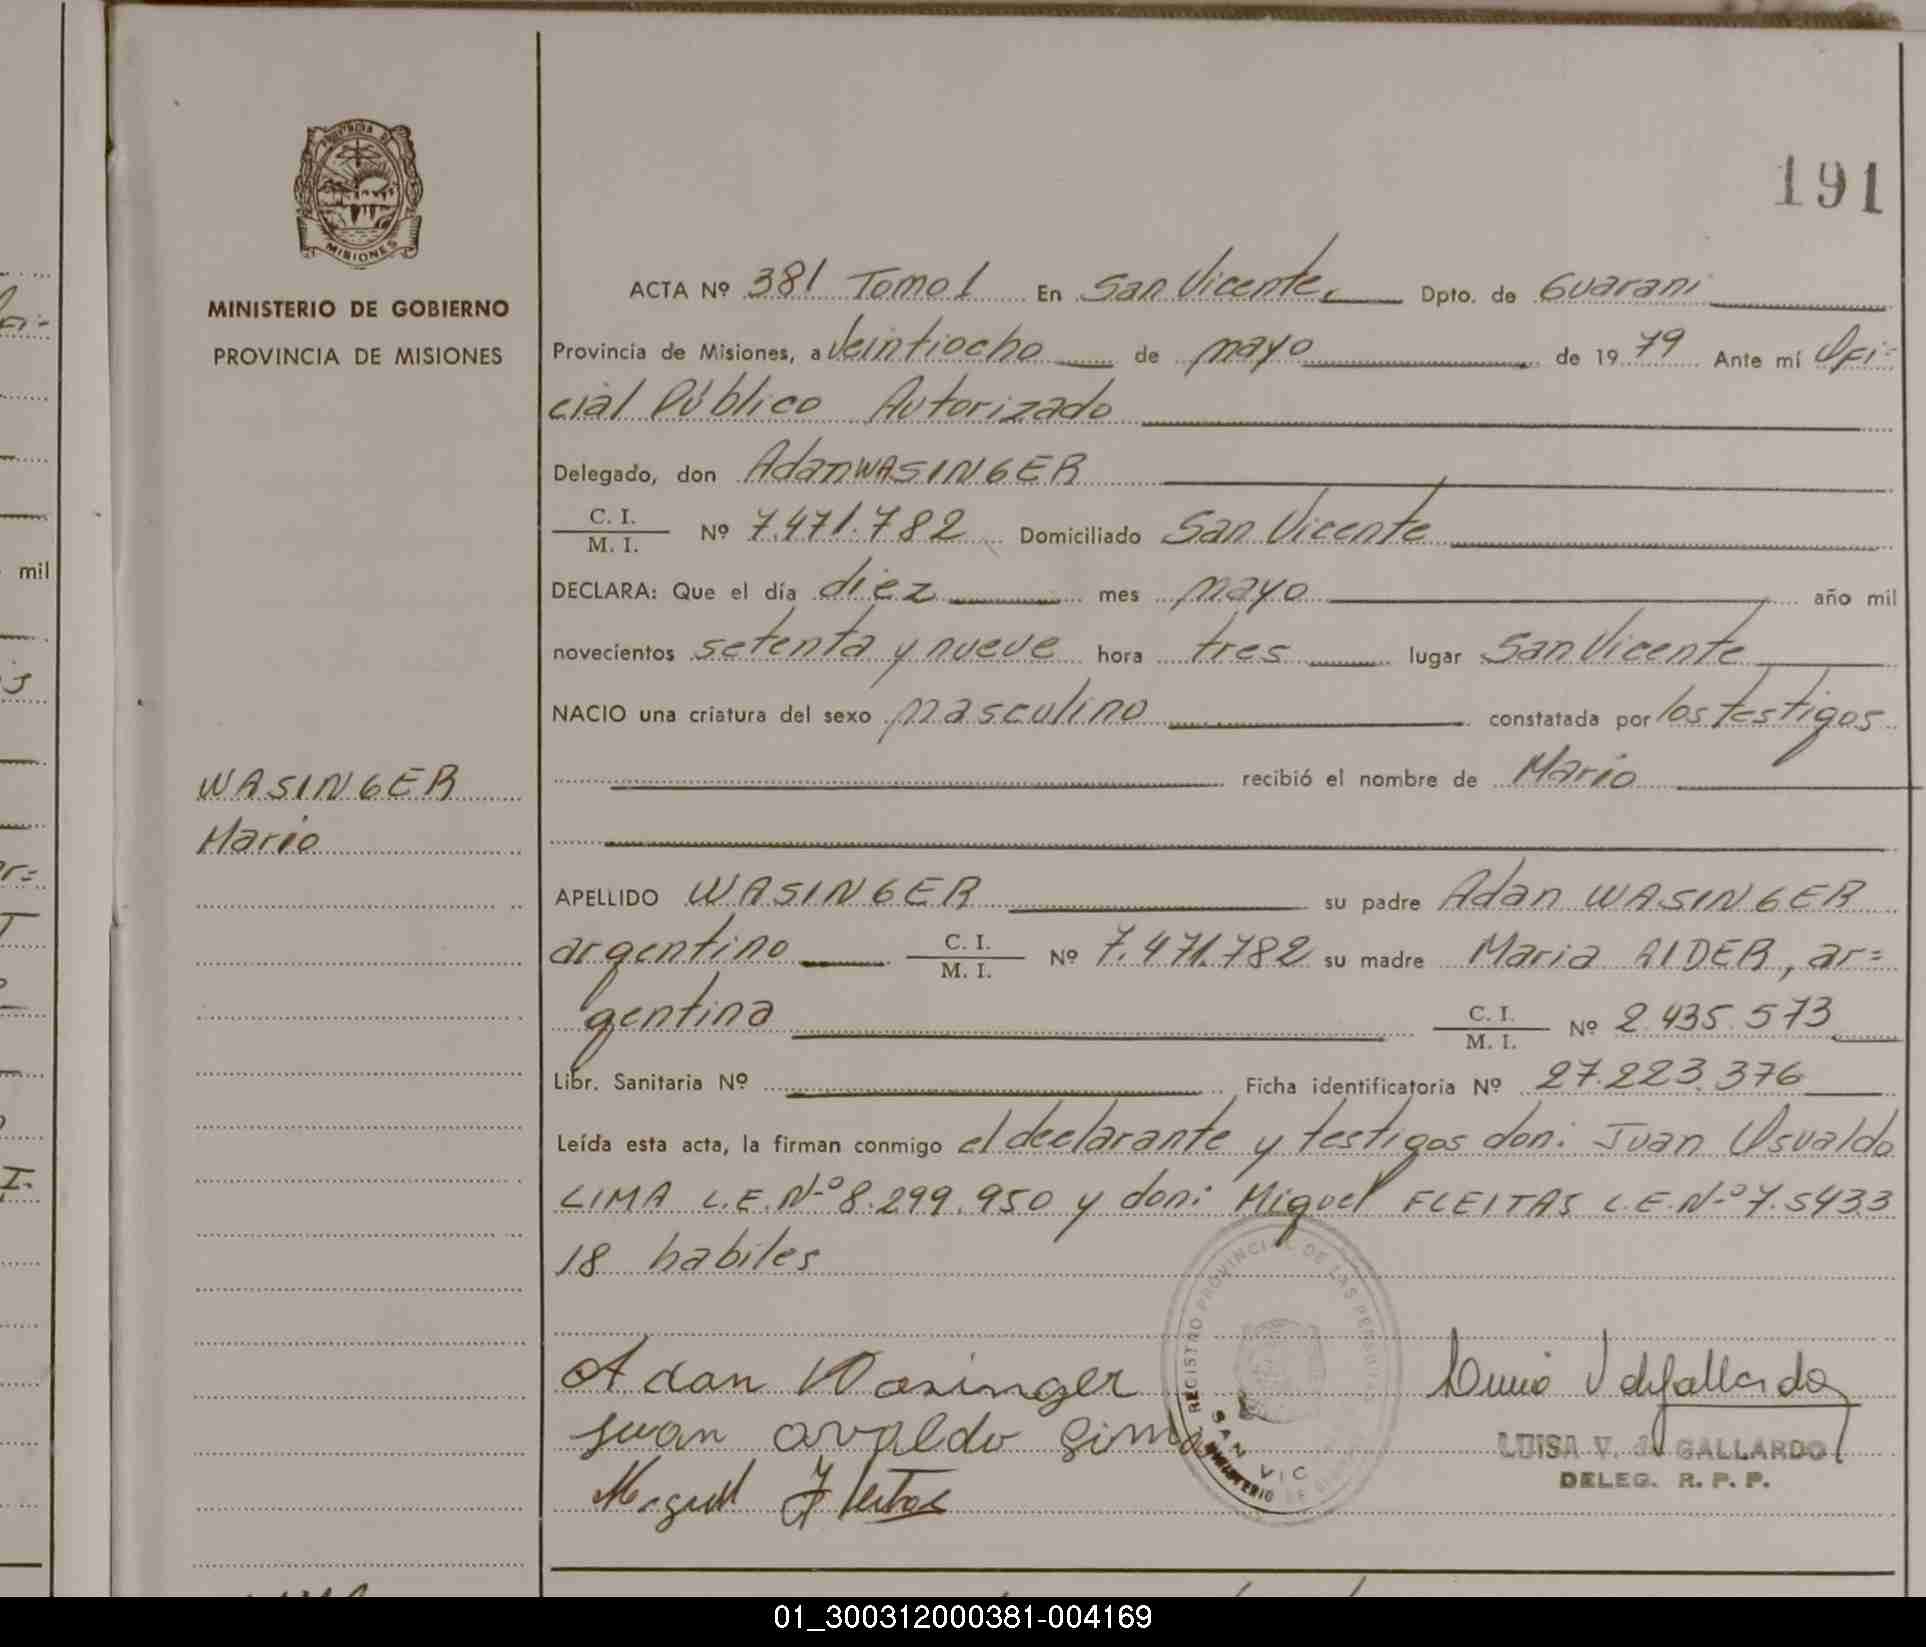 191
PROVINCIA DE
MISIONES
MINISTERIO DE GOBIERNO
PROVINCIA DE MISIONES
WASINGER
Mario
ACTA Nº 381 Tomo I En San Vicente, Dpto. de Guarani
Provincia de Misiones, a veintiocho de mayo de 1979 Ante mí Ofi=
cial Público Autorizado
Delegado, don Adan WASINGER
C. I.
M. I. Nº 7.471.782 Domiciliado San Vicente
DECLARA: Que el día diez mes mayo año mil
novecientos setenta y nueve hora tres lugar San Vicente
NACIO una criatura del sexo masculino constatada por los testigos
recibió el nombre de Mario
APELLIDO WASINGER su padre Adan WASINGER
argentino C. I.
M. I. Nº 7.471.782 su madre Maria AIDER, ar=
gentina C. I.
M. I. Nº 2.435.573
Libr. Sanitaria Nº Ficha identificatoria Nº 27.223.376
Leída esta acta, la firman conmigo el declarante y testigos don: Juan Osvaldo
LIMA L.E.Nº 8.299.950 y don: Miguel FLEITAS L.E.Nº 7.5433
18 habiles
Adan Wasinger
Juan Osvaldo Lima
Miguel Fleitas
REGISTRO PROVINCIAL DE LAS PERSONAS
SAN VIC
MINISTERIO DE
LUISA V. de GALLARDO
DELEG. R. P. P.
mil
01_300312000381-004169